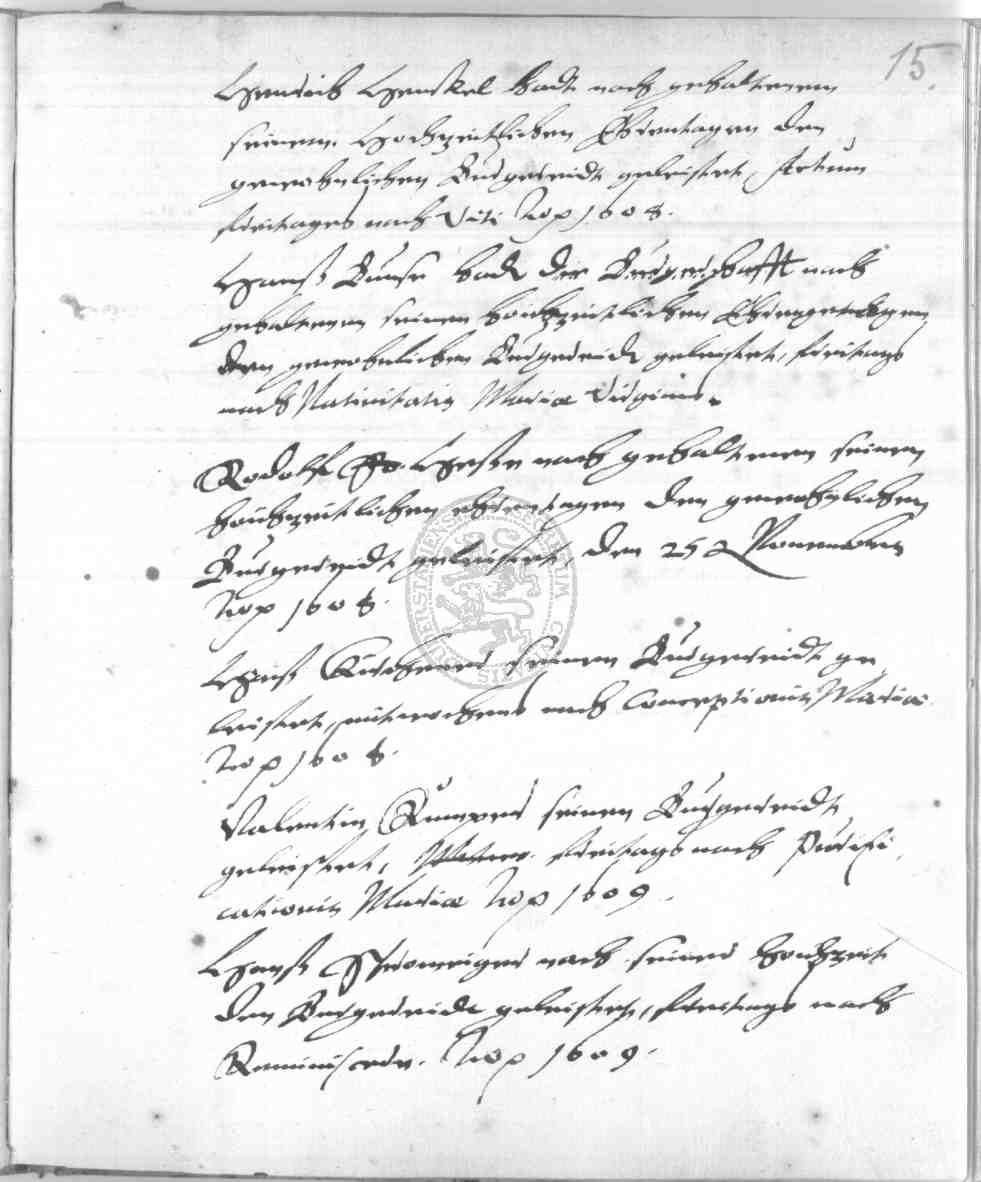 15.
Henrich Henckel hadt nach gehaltenem
seinem Hochzeitlichen Ehrentagen den
gewohnlichen Burgereidt geleistet, Actum
freitages nach Viti Ao 1608.
Hanß Bunse hadt der Burgerschafft nach
gehaltenen seinen hochzeitlichen
den gewohnlichen Burgereidt geleistet, freitags
nach Nativitatis Mariæ Virginis.
Rodolff nach gehaltenen seinen
hochzeitlichen ehrentagen den gewohnlichen
Burgereidt geleistet, den 25 Novembris
Ao 1608.
Hanß seinen Burgereidt ge
leistet, mitwochens nach Conceptionis Mariæ
Ao 1608.
Valentin seinen Burgereidt
geleistet, freitags nach Purifi
cationis Mariæ Ao 1609.
Hanß nach seiner hochzeit
den Burgereidt geleistet, freitags nach
Reminiscere. Ao 1609.